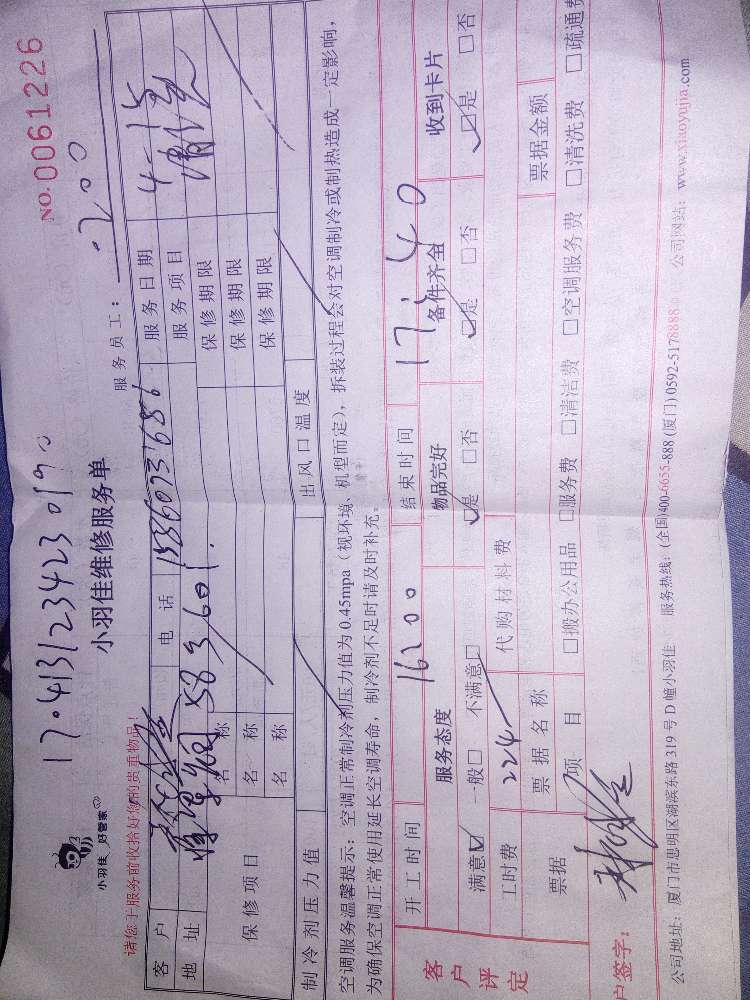 NO.0061226
1704131234230190
小羽佳 好管家
小羽佳维修服务单
服务员工：
200
请您于服务前收拾好你的贵重物品！
客户
电话
服务日期 4-15
地址 583 601.
服务项目
保修项目
名称
保修期限
名称
保修期限
名称
保修期限
制冷剂压力值
出风口温度
空调服务温馨提示：空调正常制冷剂压力值为 0.45mpa（视环境、机型而定），拆装过程会对空调制冷或制热造成一定影响，
为确保空调正常使用延长空调寿命，制冷剂不足时请及时补充。
客户评定
开工时间 16:00 结束时间 17:40
服务态度 物品完好 备件齐全 收到卡片
满意☑ 一般□ 不满意□ ☑是 □否 ☑是 □否 ☑是 □否
工时费 224 代购材料费
票据 票据名称 票据金额
项目 □搬办公用品 □服务费 □清洁费 □空调服务费 □清洗费 □疏通费
户签字：
公司地址：厦门市思明区湖滨东路 319 号 D 幢小羽佳 服务热线：(全国)400-6655-888 (厦门).0592-5178888 公司网站：www.xiaoyujia.com